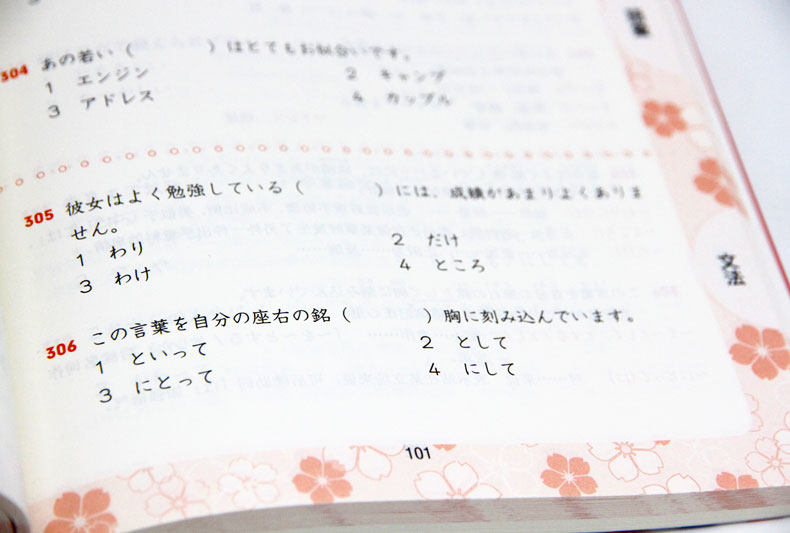 語彙
304 あの若い（　　　　）はとてもお似合いです。
1 エンジン　2 キャンプ
3 アドレス　4 カップル
305 彼女はよく勉強している（　　　　）には、成績があまりよくありま
せん。
1 わり　2 だけ
3 わけ　4 ところ
文法
306 この言葉を自分の座右の銘（　　　　）胸に刻み込んでいます。
1 といって　2 として
3 にとって　4 にして
101